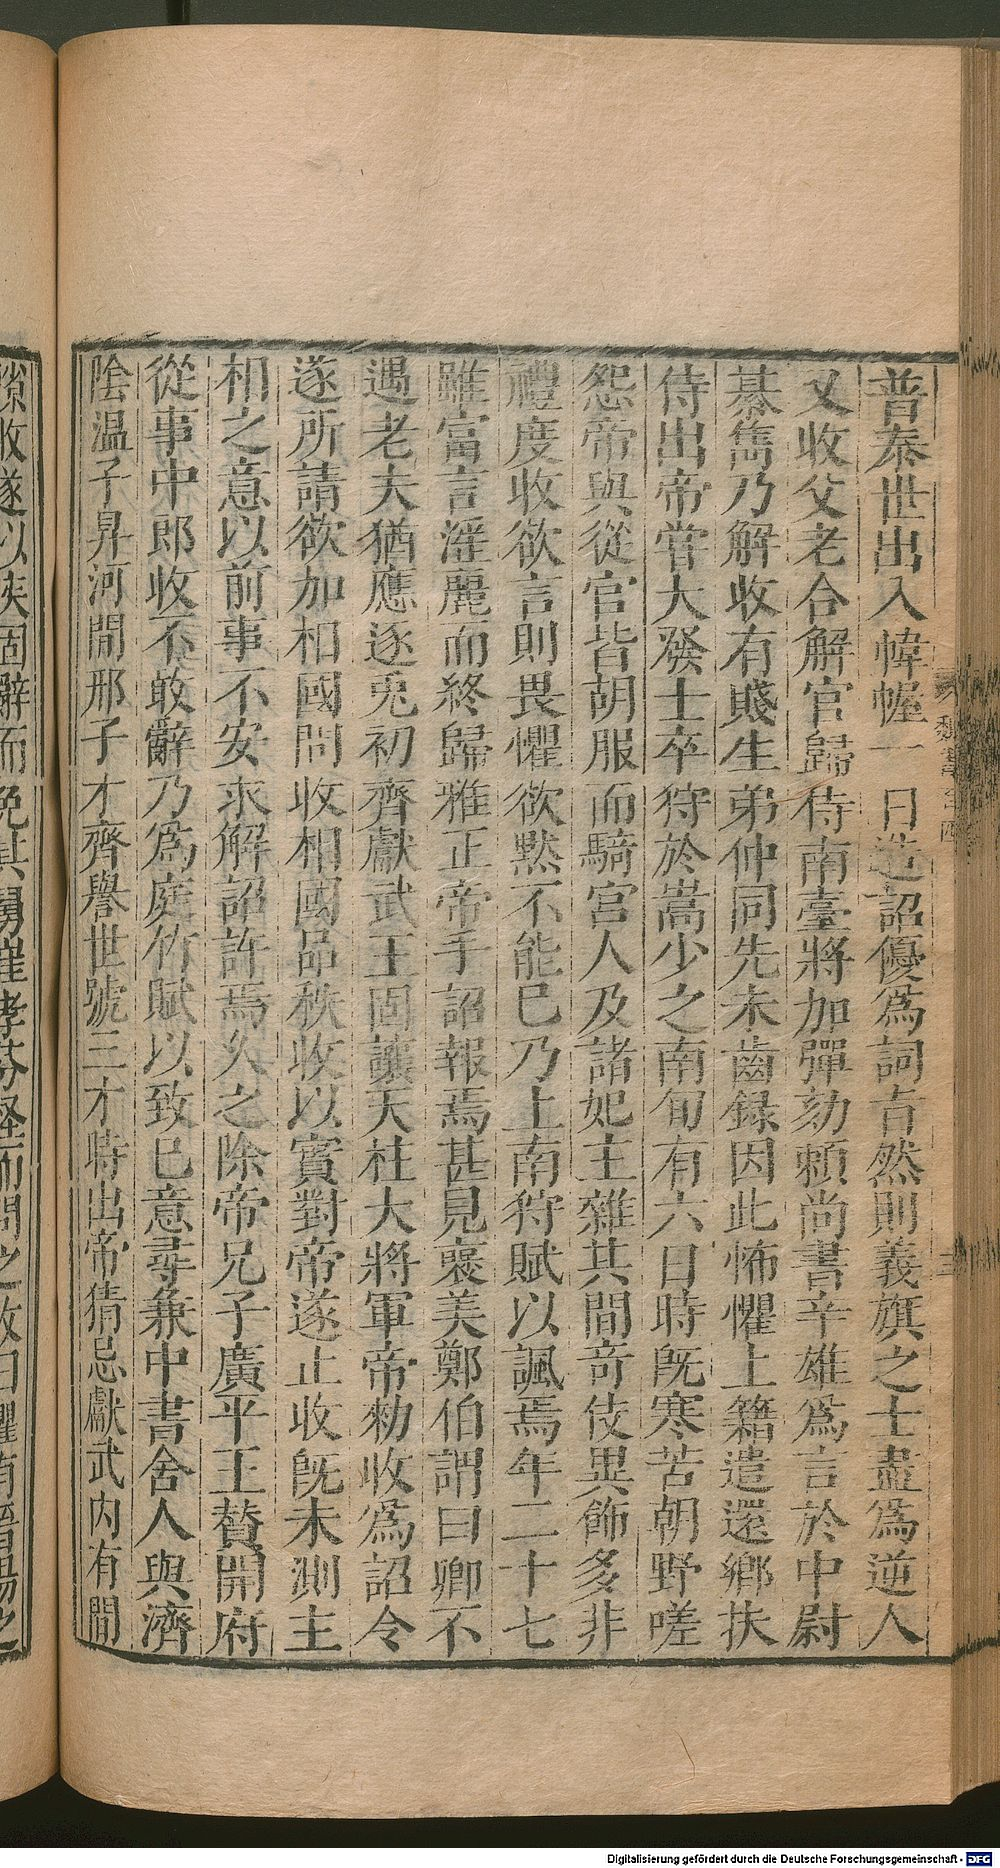 普泰世出入幃幄一日造詔優爲詞旨然則義旗之士盡爲逆人
又收父老合解官歸侍南臺將加彈劾頼尚書辛雄爲言於中尉
綦雋乃解收有賤生弟仲同先未齒録因此怖懼上籍遣還鄉扶
侍出帝嘗大發士卒狩於嵩少之南旬有六日時旣寒苦朝野嗟
怨帝與從官皆胡服而騎宮人及諸妃主雜其間奇伎異飾多非
禮度收欲言則畏懼欲黙不能已乃上南狩賦以諷焉年二十七
雖富言滛麗而終歸雅正帝手詔報焉甚見襃美鄭伯謂曰卿不
遇老夫猶應逐兎初齊獻武王固讓天柱大將軍帝勑收爲詔令
遂所請欲加相國問收相國品秩收以實對帝遂止收旣未測主
相之意以前事不安求解詔許焉久之除帝兄子廣平王贊開府
從事中郎收不敢辭乃爲庭竹賦以致巳意尋兼中書舍人與濟
陰温子昇河間邢子才齊譽世號三才時出帝猜忌獻武内有間
隙收遂以疾固辭而免其舅崔孝芬怪而問之收曰懼有晉陽之
Digitalisierung gefördert durch die Deutsche Forschungsgemeinschaft - DFG